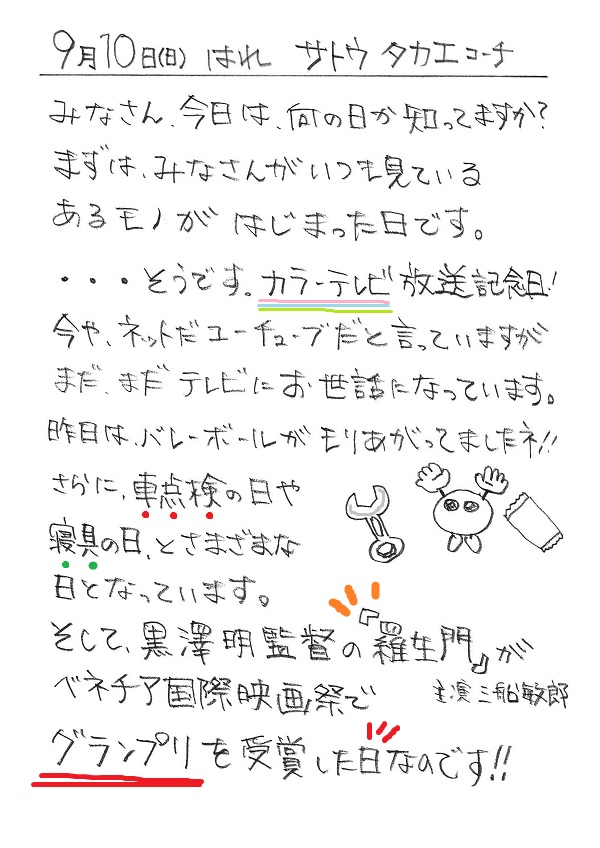 9月10日(日) はれ サトウ タカエコーチ
みなさん、今日は、何の日か知ってますか?
まずは、みなさんがいつも見ている
あるモノが はじまった日です。
・・・そうです。カラーテレビ放送記念日!
今や、ネットだユーチューブだと言っていますが
まだ、まだテレビにお世話になっています。
昨日は、バレーボールがモリあがってましたネ!!
さらに、車点検の日や
寝具の日、とさまざまな
日となっています。
そして、黒澤明監督の『羅生門』が
ベネチア国際映画祭で 主演 三船敏郎
グランプリを受賞した日なのです!!